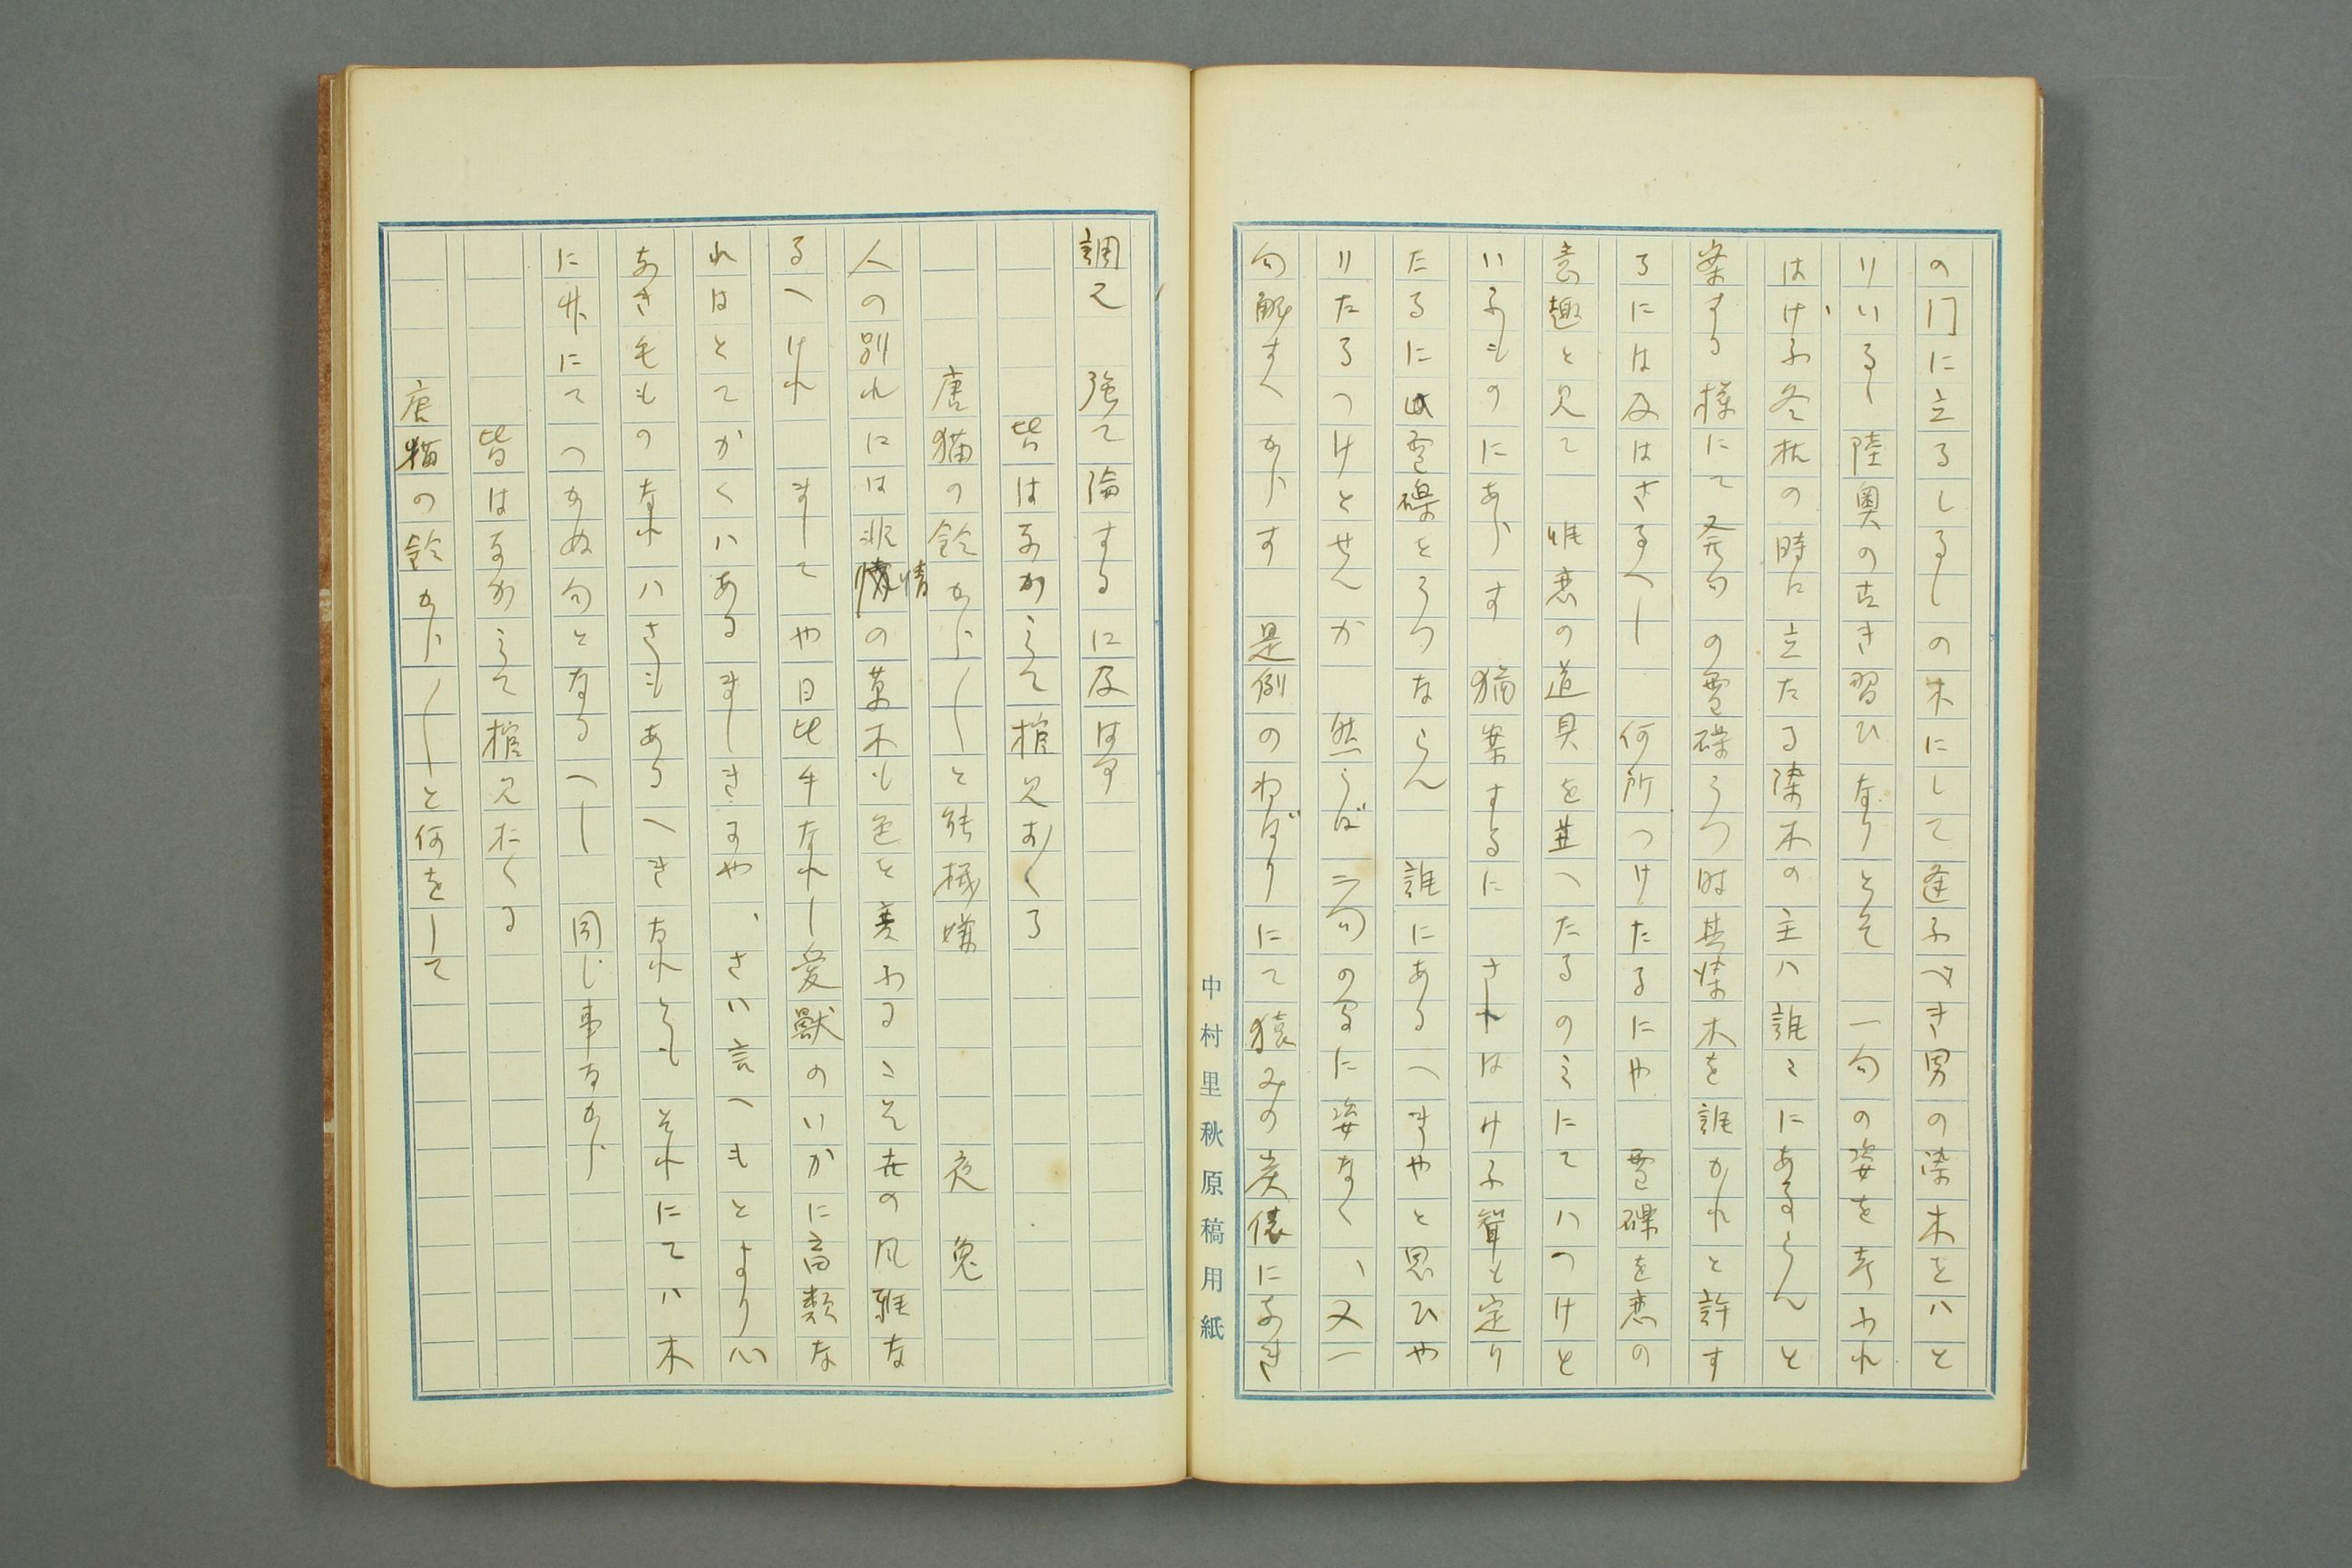 の門に立るしるしの木にして逢ふべき男の染木をハと
りいるゝ陸奥の古き習ひなりとそ 一句の姿を考ふれ
はけふ冬枕の時に立たる染木の主ハ誰々にあるらんと
案する様にて発句の雪礫うつ時其染木を誰かれと許す
るには及はさるへし 何所つけたるにや 雪礫を恋の
意趣と見て 唯恋の道具を並へたるのミにてハつけと
いふものにあらす 猶案するに されはけふ聟と定り
たるに此雪礫をうつならん 誰にあるへきやと思ひや
りたるつけとせんか 然らば二句の間に姿なく、又一
句解すへからす 是例のねばりにて猿みの炭俵になき
中村里秋原稿用紙
調え 強て論するに及はす
皆はなかミて棺見おくる
唐猫の鈴から〱と能機嫌 夜兔
人の別れには非情の草木も色を変ふるこそ世の風雅な
るへけれ ましてや日比手なれし愛獣のいかに畜類な
れはとてかくハあるましきすや、さハ言へもとより心
なき毛ものなれハさもあるへきなれとも それにてハ木
に竹にてつかぬ句となるへし 同じ事なから
皆はなかミて棺見おくる
唐猫の鈴から〱と何をして